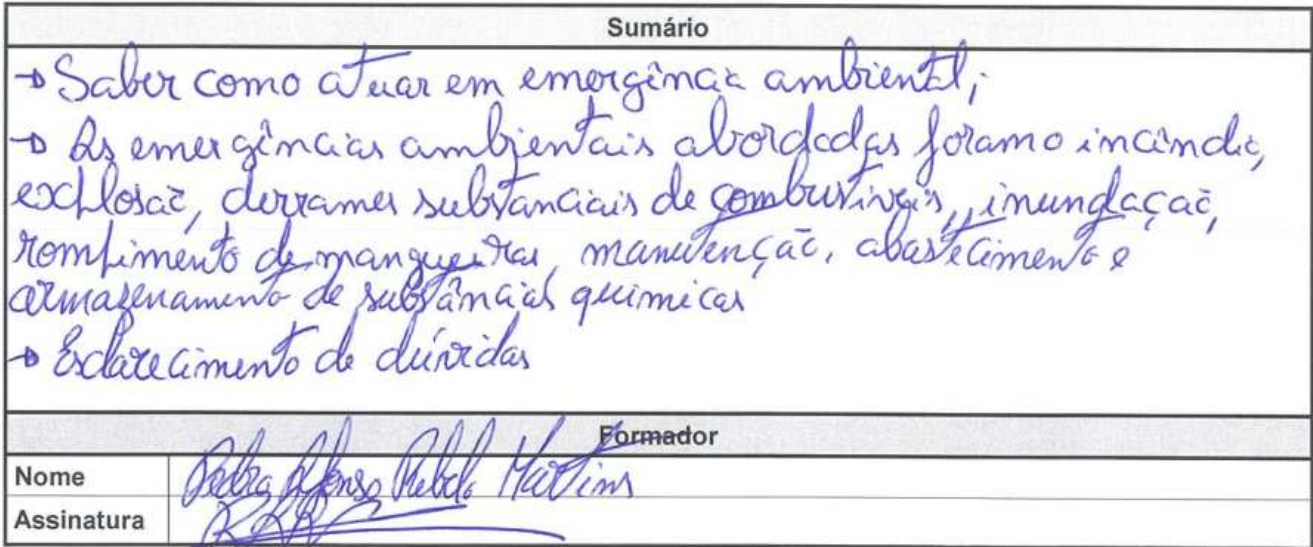 Sumário
→ Saber como atuar em emergência ambiental;
→ As emergências ambientais abordadas foram o incêndio,
explosão, derrames substanciais de combustíveis, inundação,
rompimento de mangueiras, manutenção, abastecimento e
armazenamento de substâncias químicas
→ Esclarecimento de dúvidas
Formador
Nome Pedro Afonso Rebelo Martins
Assinatura